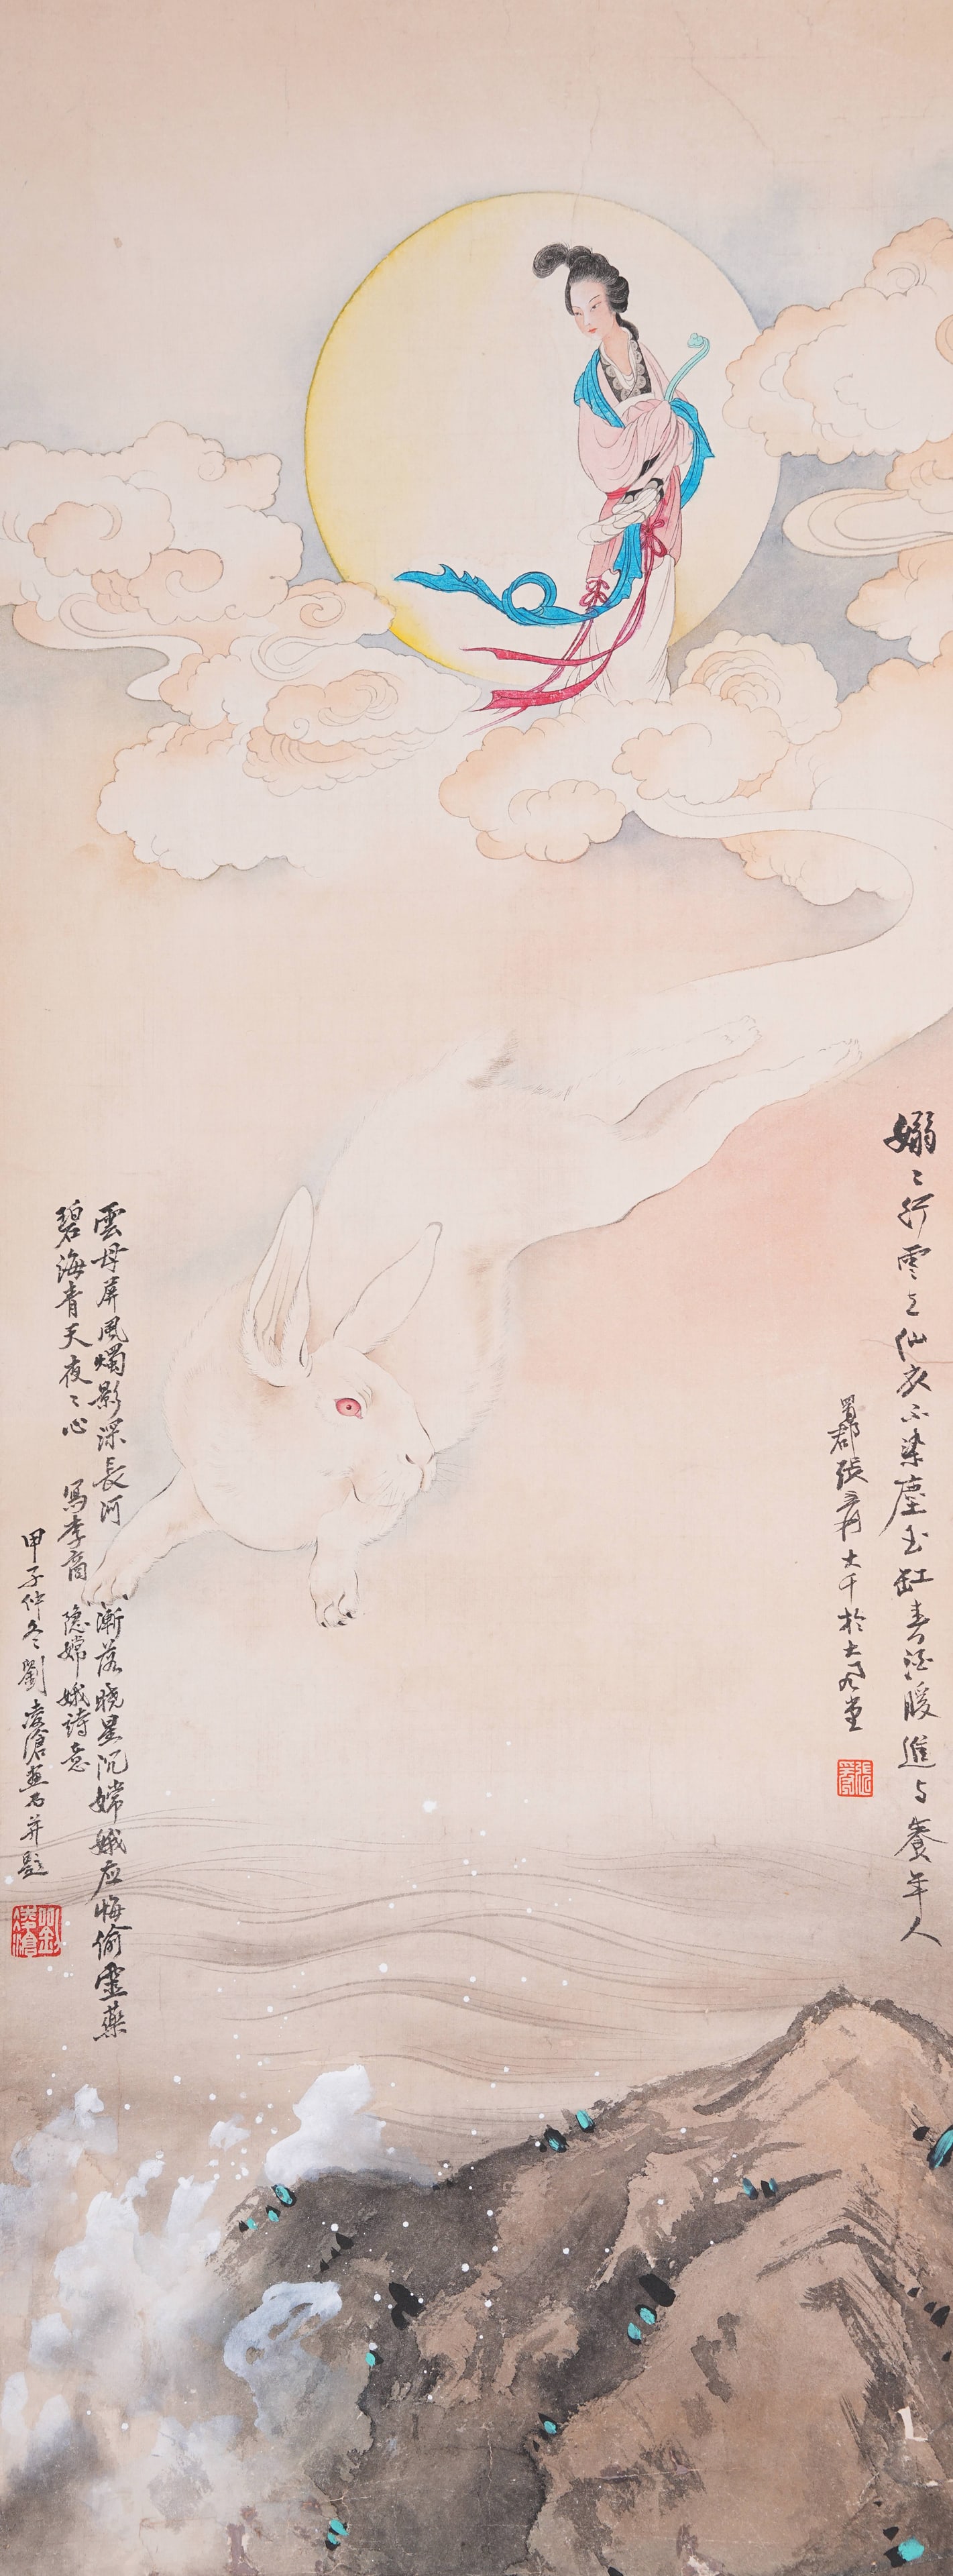 嫋〻行雲上仙衣不染塵玉缸春酒暖進与養年人
蜀郡張爰大千於大風堂
張爰
雲母屏風燭影深長河漸落晓星沉嫦娥应悔偷靈藥
碧海青天夜〻心 寫李商隐嫦娥詩意
甲子仲冬劉凌滄畫石并題
劉凌滄